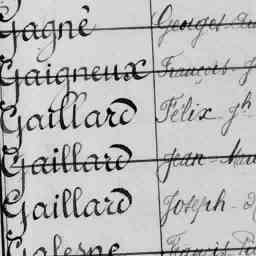 Gagné Georges
Gaigneux François J
Gaillard Félix Jh
Gaillard Jean-Mar
Gaillard Joseph
Galerne Francis